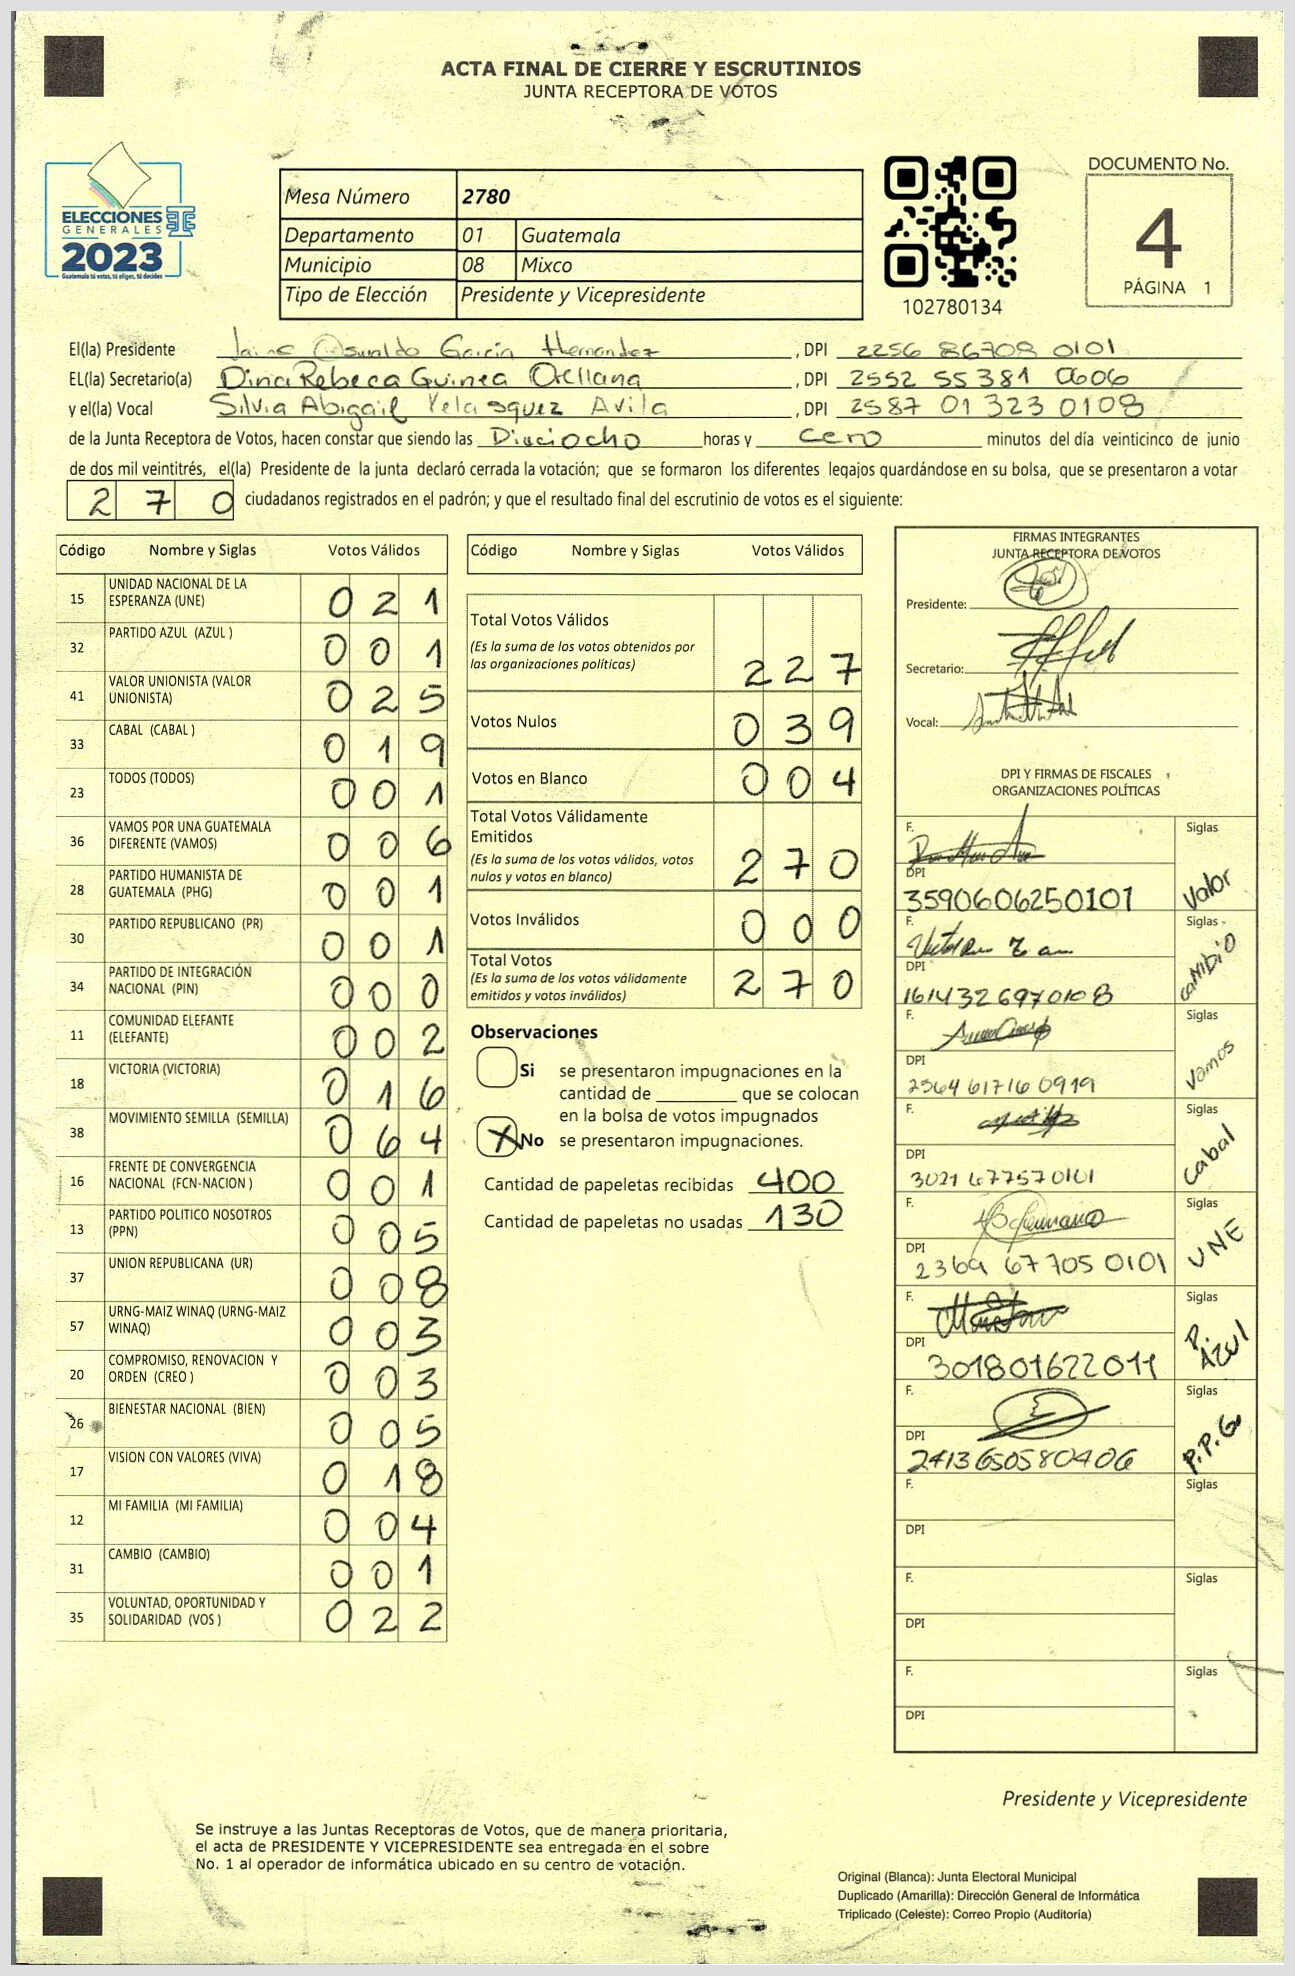 ACTA FINAL DE CIERRE Y ESCRUTINIOS
JUNTA RECEPTORA DE VOTOS
ELECCIONES
GENERALES
2023
Guatemala tú votas, tú eliges, tú decides
Mesa Número 2780
Departamento 01 Guatemala
Municipio 08 Mixco
Tipo de Elección Presidente y Vicepresidente
102780134
DOCUMENTO No.
4
PÁGINA 1
El(la) Presidente Jaime Oswaldo García Hernandez, DPI 2256 86708 0101
EL(la) Secretario(a) Dina Rebeca Guinea Orellana, DPI 2552 55381 0606
y el(la) Vocal Silvia Abigail Velasquez Avila, DPI 2587 01323 0108
de la Junta Receptora de Votos, hacen constar que siendo las Dieciocho horas y cero minutos del día veinticinco de junio
de dos mil veintitrés, el(la) Presidente de la junta declaró cerrada la votación; que se formaron los diferentes legajos quardándose en su bolsa, que se presentaron a votar
270 ciudadanos registrados en el padrón; y que el resultado final del escrutinio de votos es el siguiente:
Código Nombre y Siglas Votos Válidos
15 UNIDAD NACIONAL DE LA
ESPERANZA (UNE) 021
32 PARTIDO AZUL (AZUL ) 001
41 VALOR UNIONISTA (VALOR
UNIONISTA) 025
33 CABAL (CABAL ) 019
23 TODOS (TODOS) 001
36 VAMOS POR UNA GUATEMALA
DIFERENTE (VAMOS) 006
28 PARTIDO HUMANISTA DE
GUATEMALA (PHG) 001
30 PARTIDO REPUBLICANO (PR) 001
34 PARTIDO DE INTEGRACIÓN
NACIONAL (PIN) 000
11 COMUNIDAD ELEFANTE
(ELEFANTE) 002
18 VICTORIA (VICTORIA) 016
38 MOVIMIENTO SEMILLA (SEMILLA) 064
16 FRENTE DE CONVERGENCIA
NACIONAL (FCN-NACION ) 001
13 PARTIDO POLITICO NOSOTROS
(PPN) 005
37 UNION REPUBLICANA (UR) 008
57 URNG-MAIZ WINAQ (URNG-MAIZ
WINAQ) 003
20 COMPROMISO, RENOVACION Y
ORDEN (CREO ) 003
26 BIENESTAR NACIONAL (BIEN) 005
17 VISION CON VALORES (VIVA) 018
12 MI FAMILIA (MI FAMILIA) 004
31 CAMBIO (CAMBIO) 001
35 VOLUNTAD, OPORTUNIDAD Y
SOLIDARIDAD (VOS ) 022
Código Nombre y Siglas Votos Válidos
Total Votos Válidos
(Es la suma de los votos obtenidos por
las organizaciones políticas) 227
Votos Nulos 039
Votos en Blanco 004
Total Votos Válidamente
Emitidos
(Es la suma de los votos válidos, votos
nulos y votos en blanco) 270
Votos Inválidos 000
Total Votos
(Es la suma de los votos válidamente
emitidos y votos inválidos) 270
Observaciones
Si se presentaron impugnaciones en la
cantidad de ________ que se colocan
en la bolsa de votos impugnados
X No se presentaron impugnaciones.
Cantidad de papeletas recibidas 400
Cantidad de papeletas no usadas 130
FIRMAS INTEGRANTES
JUNTA RECEPTORA DE VOTOS
Presidente:
Secretario:
Vocal:
DPI Y FIRMAS DE FISCALES
ORGANIZACIONES POLÍTICAS
F. Siglas
DPI
3590606250101 Valor
F. Siglas
DPI
1614326970108 CAMBIO
F. Siglas
DPI
2364 61716 0919 Vamos
F. Siglas
DPI
3021 677570101 Cabal
F. Siglas
DPI
2369 67705 0101 UNE
F. Siglas
DPI
301801622011 P. AZUL
F. Siglas
DPI
2413650580406 P.P.G.
F. Siglas
DPI
F. Siglas
DPI
F. Siglas
DPI
Presidente y Vicepresidente
Se instruye a las Juntas Receptoras de Votos, que de manera prioritaria,
el acta de PRESIDENTE Y VICEPRESIDENTE sea entregada en el sobre
No. 1 al operador de informática ubicado en su centro de votación.
Original (Blanca): Junta Electoral Municipal
Duplicado (Amarilla): Dirección General de Informática
Triplicado (Celeste): Correo Propio (Auditoría)